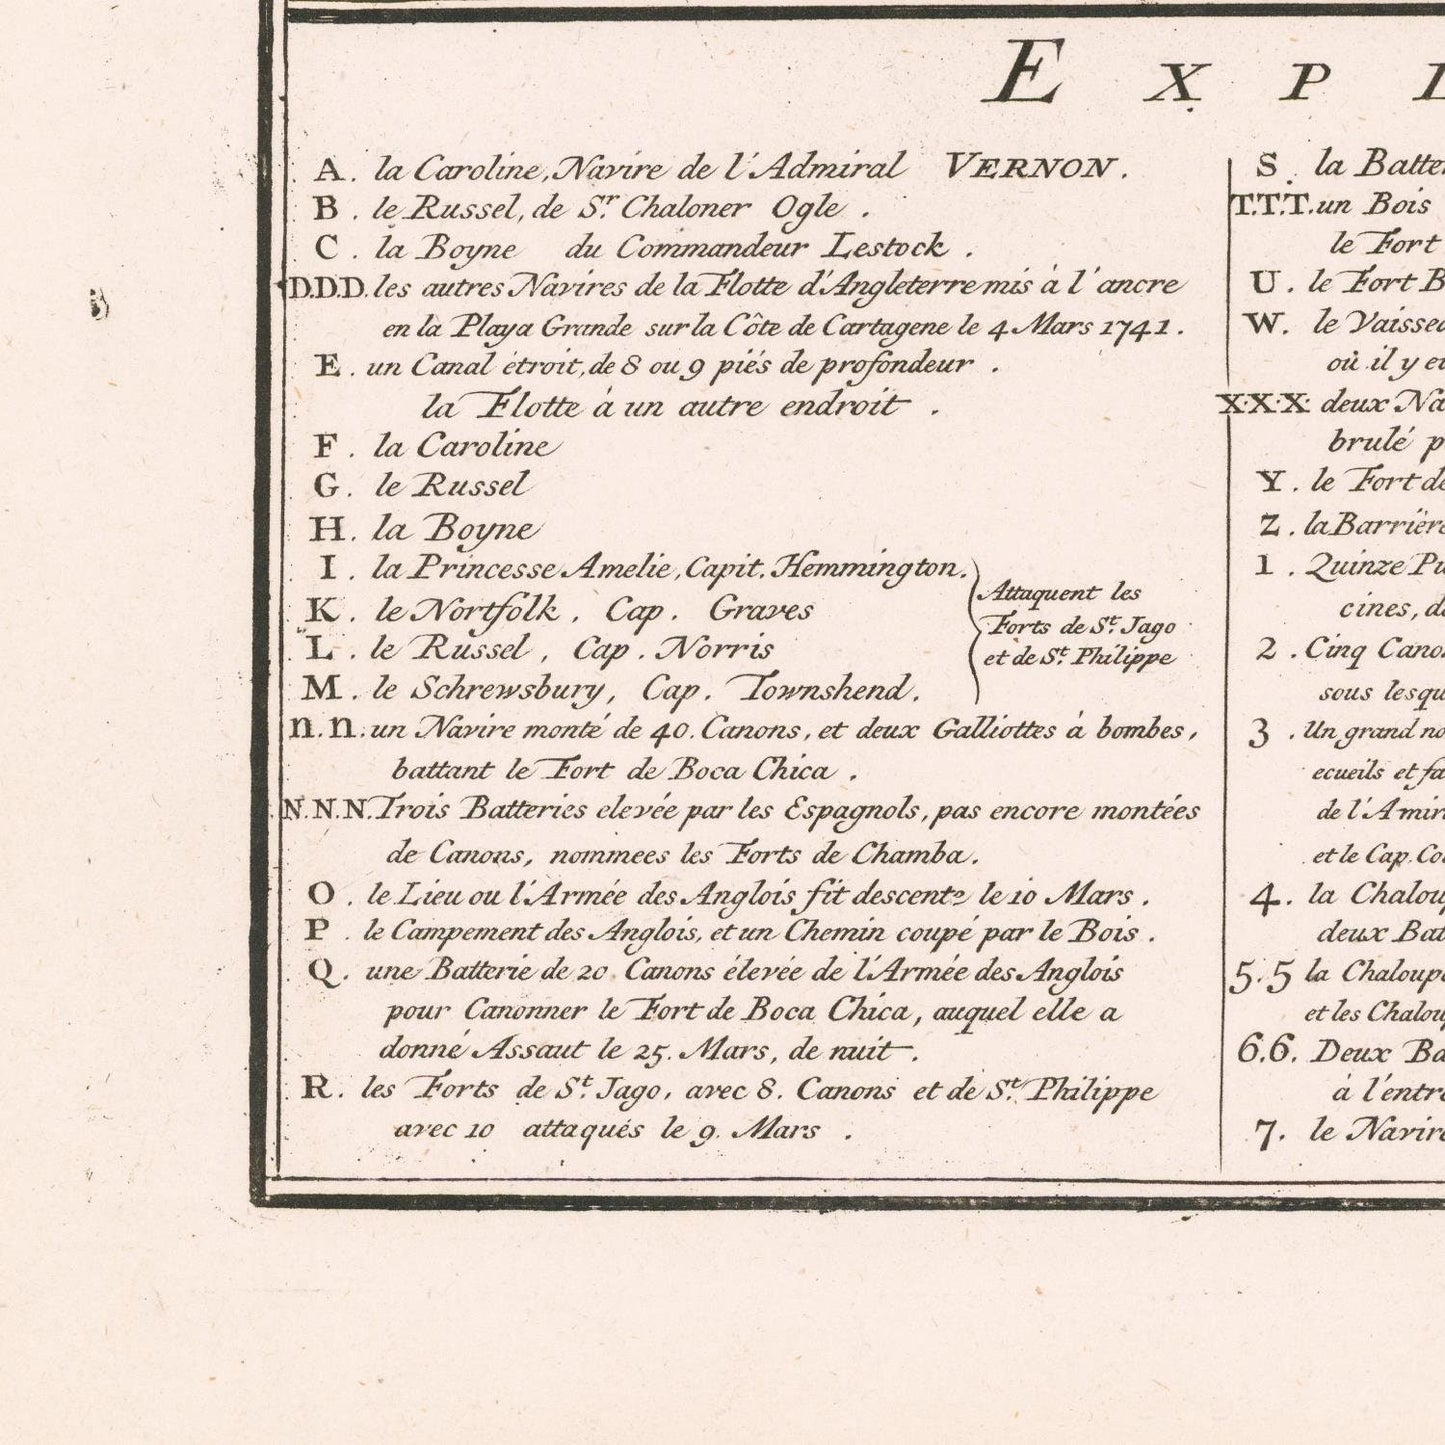 EXPL
A. la Caroline, Navire de l'Admiral VERNON.
B. le Russel, de Sr. Chaloner Ogle.
C. la Boyne du Commandeur Lestock.
D.D.D. les autres Navires de la Flotte d'Angleterre mis à l'ancre
en la Playa Grande sur la Côte de Cartagene le 4 Mars 1741.
E. un Canal étroit, de 8 ou 9 piés de profondeur.
la Flotte à un autre endroit.
F. la Caroline
G. le Russel
H. la Boyne
I. la Princesse Amelie, Capit. Hemmington.
K. le Nortfolk, Cap. Graves
L. le Russel, Cap. Norris
M. le Schrewsbury, Cap. Townshend.
Attaquent les
Forts de St. Jago
et de St. Philippe
n.n. un Navire monté de 40. Canons, et deux Galliottes à bombes,
battant le Fort de Boca Chica.
N.N.N. Trois Batteries elevée par les Espagnols, pas encore montées
de Canons, nommees les Forts de Chamba.
O. le Lieu ou l'Armée des Anglois fit descente le 10 Mars.
P. le Campement des Anglois, et un Chemin coupé par le Bois.
Q. une Batterie de 20 Canons élevée de l'Armée des Anglois
pour Canonner le Fort de Boca Chica, auquel elle a
donné Assaut le 25. Mars, de nuit.
R. les Forts de St. Jago, avec 8. Canons et de St. Philippe
avec 10 attaqués le 9. Mars.
S. la Batte
T.T.T. un Bois
le Fort
U. le Fort B
W. le Vaissea
où il y eu
X.X.X. deux Na
brulé p
Y. le Fort de
Z. la Barrière
1. Quinze Pu
cines, d
2. Cinq Cano
sous lesqu
3. Un grand no
ecueils et fa
de l'Amir
et le Cap. Co
4. la Chalou
deux Bat
5.5 la Chaloup
et les Chalou
6.6. Deux Ba
à l'entr
7. le Navire